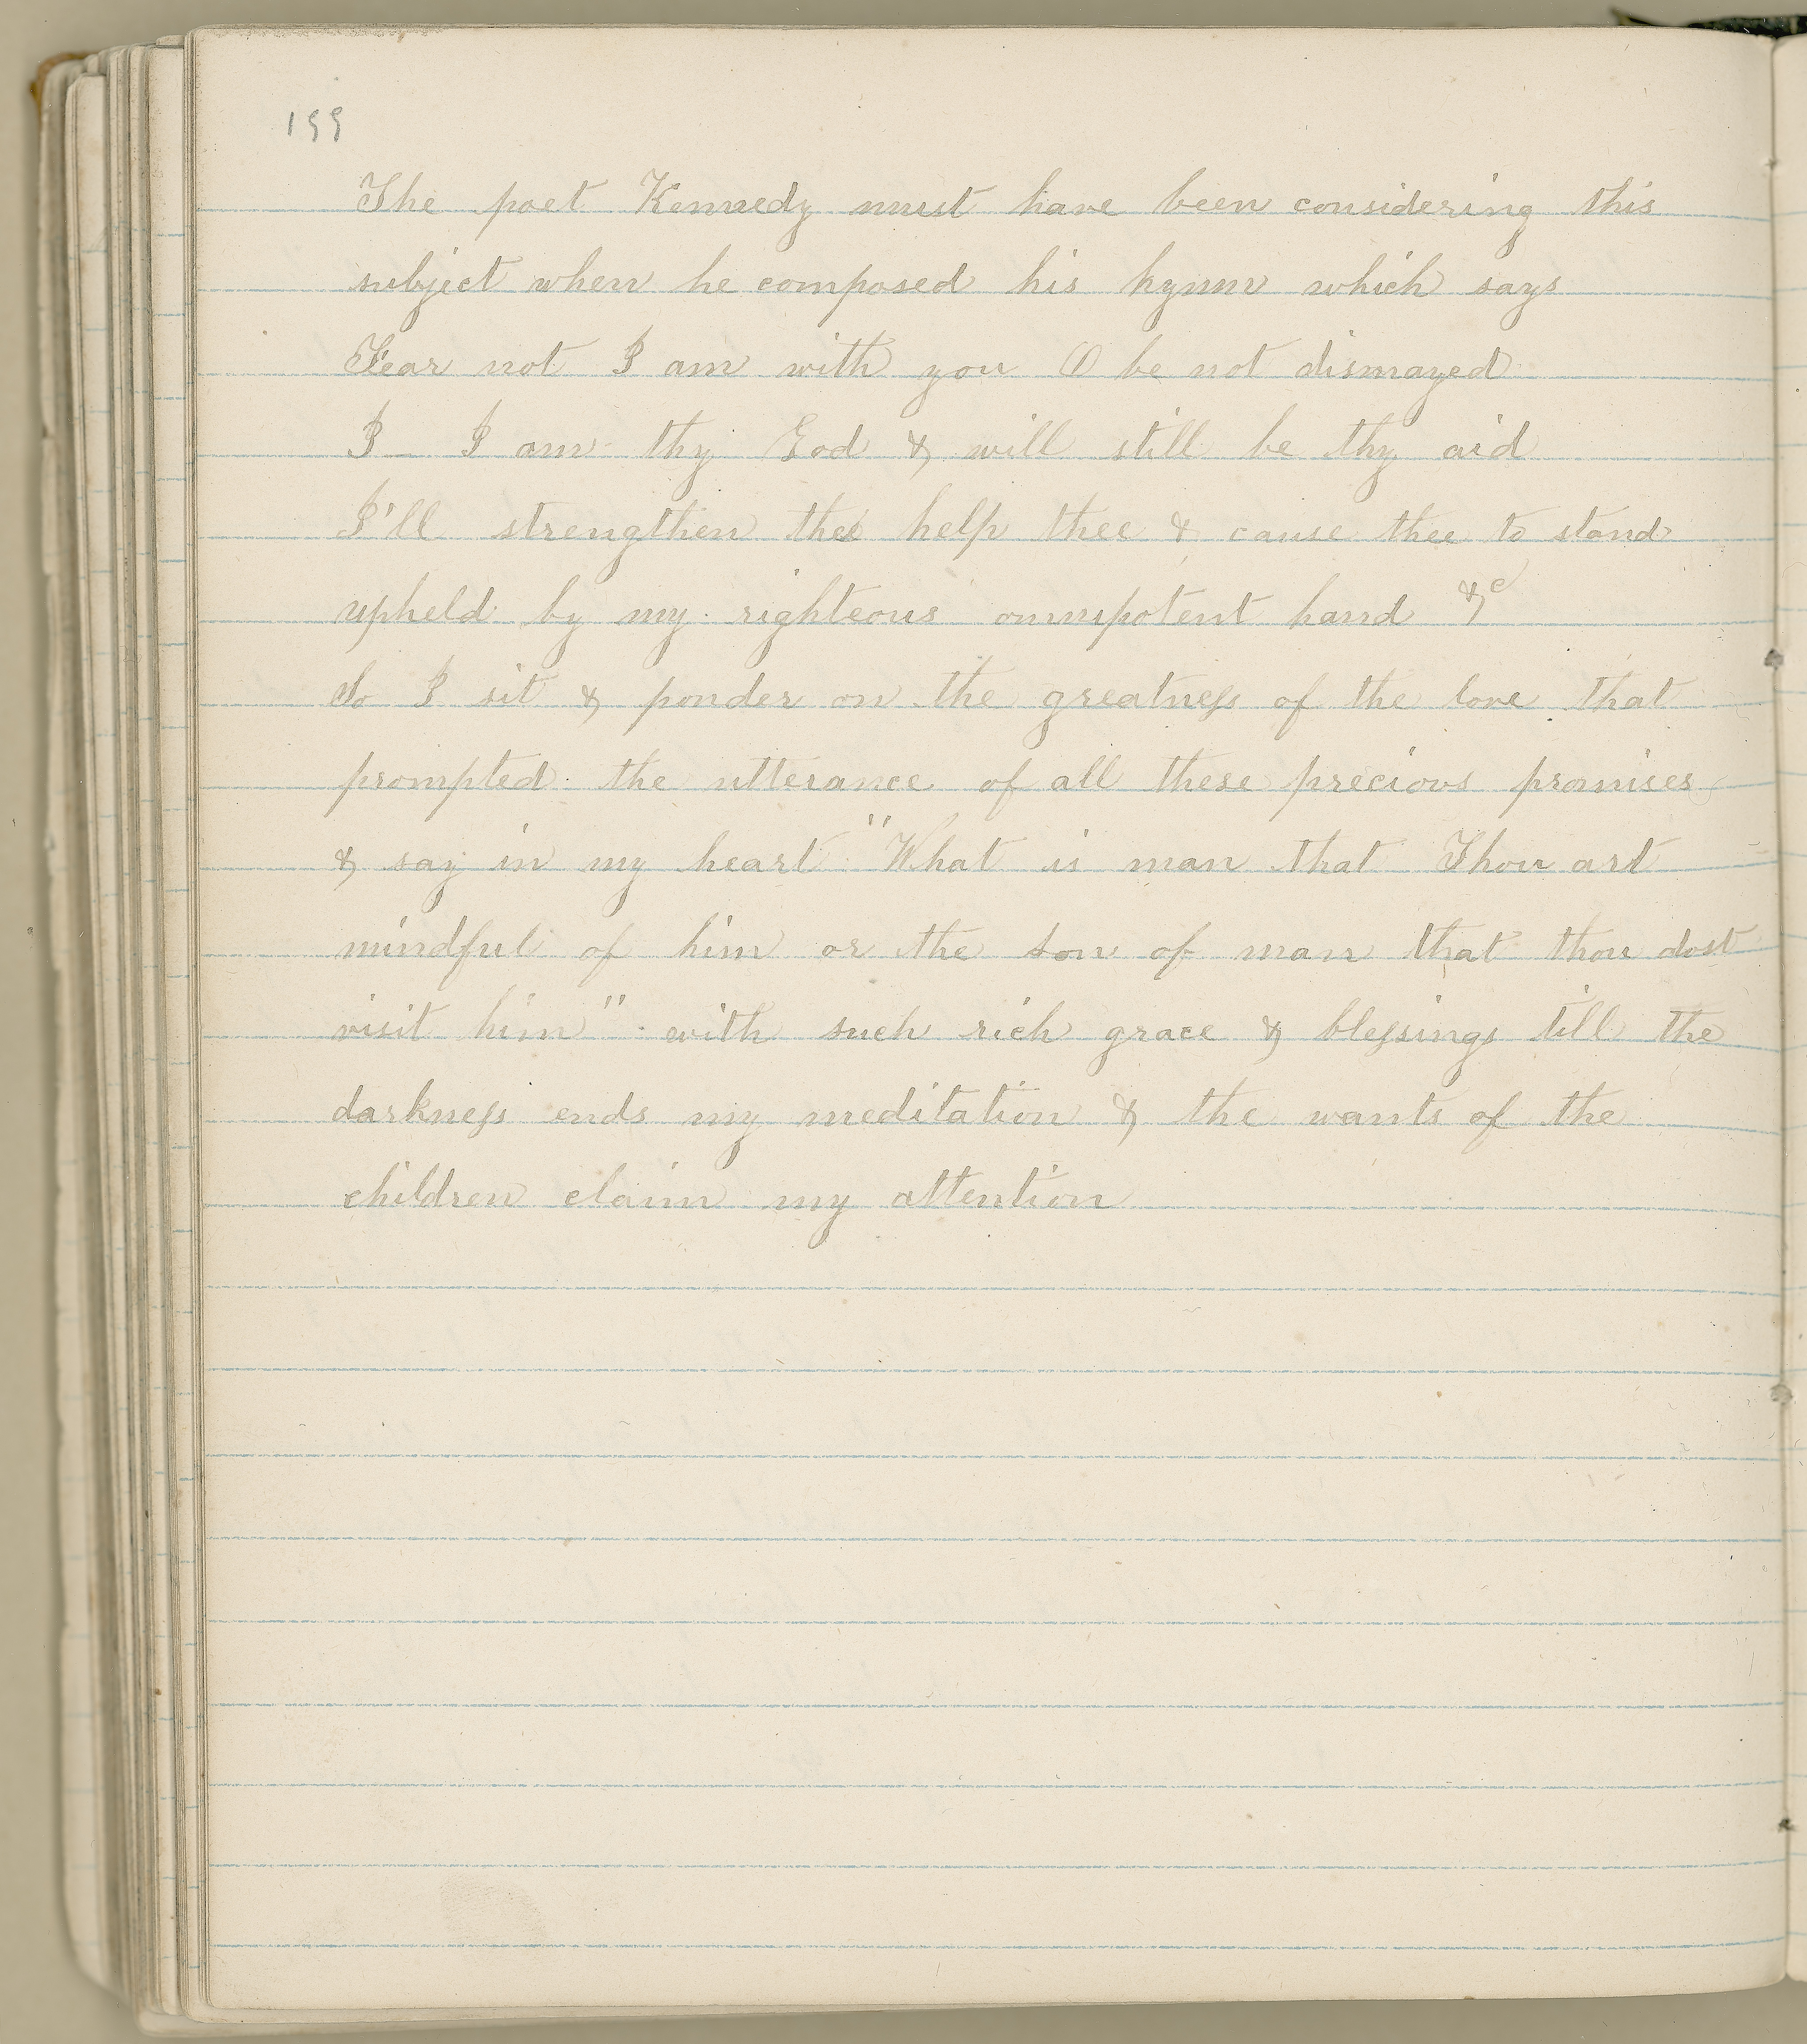 199
The poet Kennedy must have been considering this
subject when he composed his hymn which says
Fear not I am with you O be not dismayed
I I am thy God & will still be thy aid
I'll strengthen thee help thee & cause thee to stand
upheld by my righteous omnipotent hand &c
So I sit & ponder on the greatness of the love that
prompted the utterance of all these precious promises
& say in my heart "What is man that Thou art
mindful of him or the son of man that thou dost
visit him" with such rich grace & blessings till the
darkness ends my meditation & the wants of the
children claim my attention